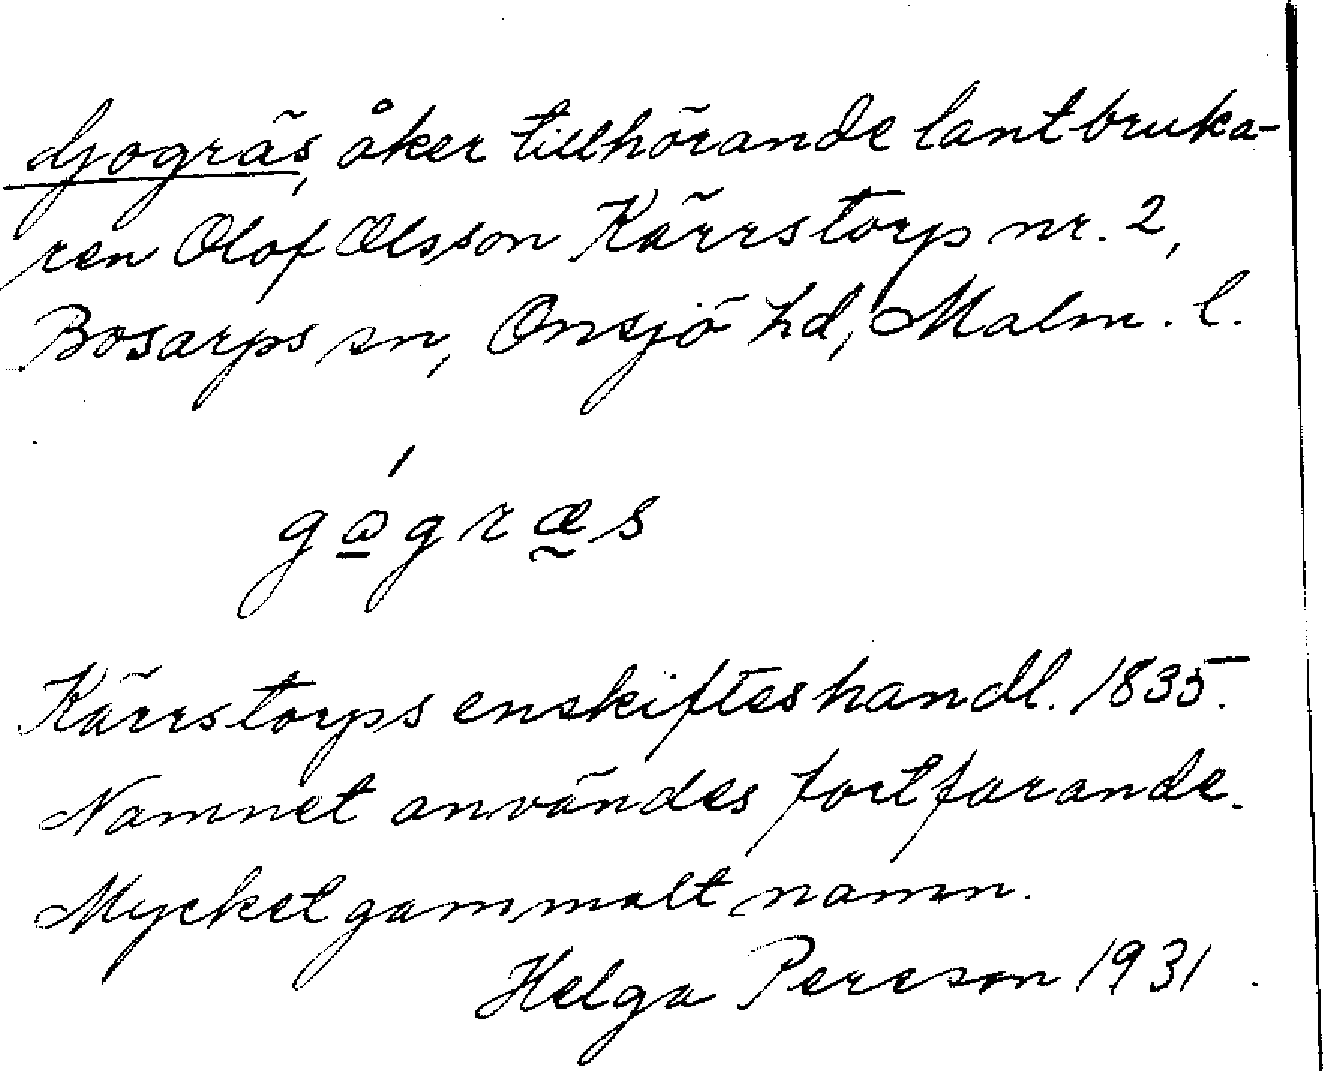 Gjogräs, åker tillhörande lantbruka-
ren Olof Olsson Kärrstorp nr. 2,
Bosarps sn, Onsjö hd, Malm. l.
gógræs
Kärrstorps enskifteshandl. 1835.
Namnet användes fortfarande.
Mycket gammalt namn.
Helga Person 1931.